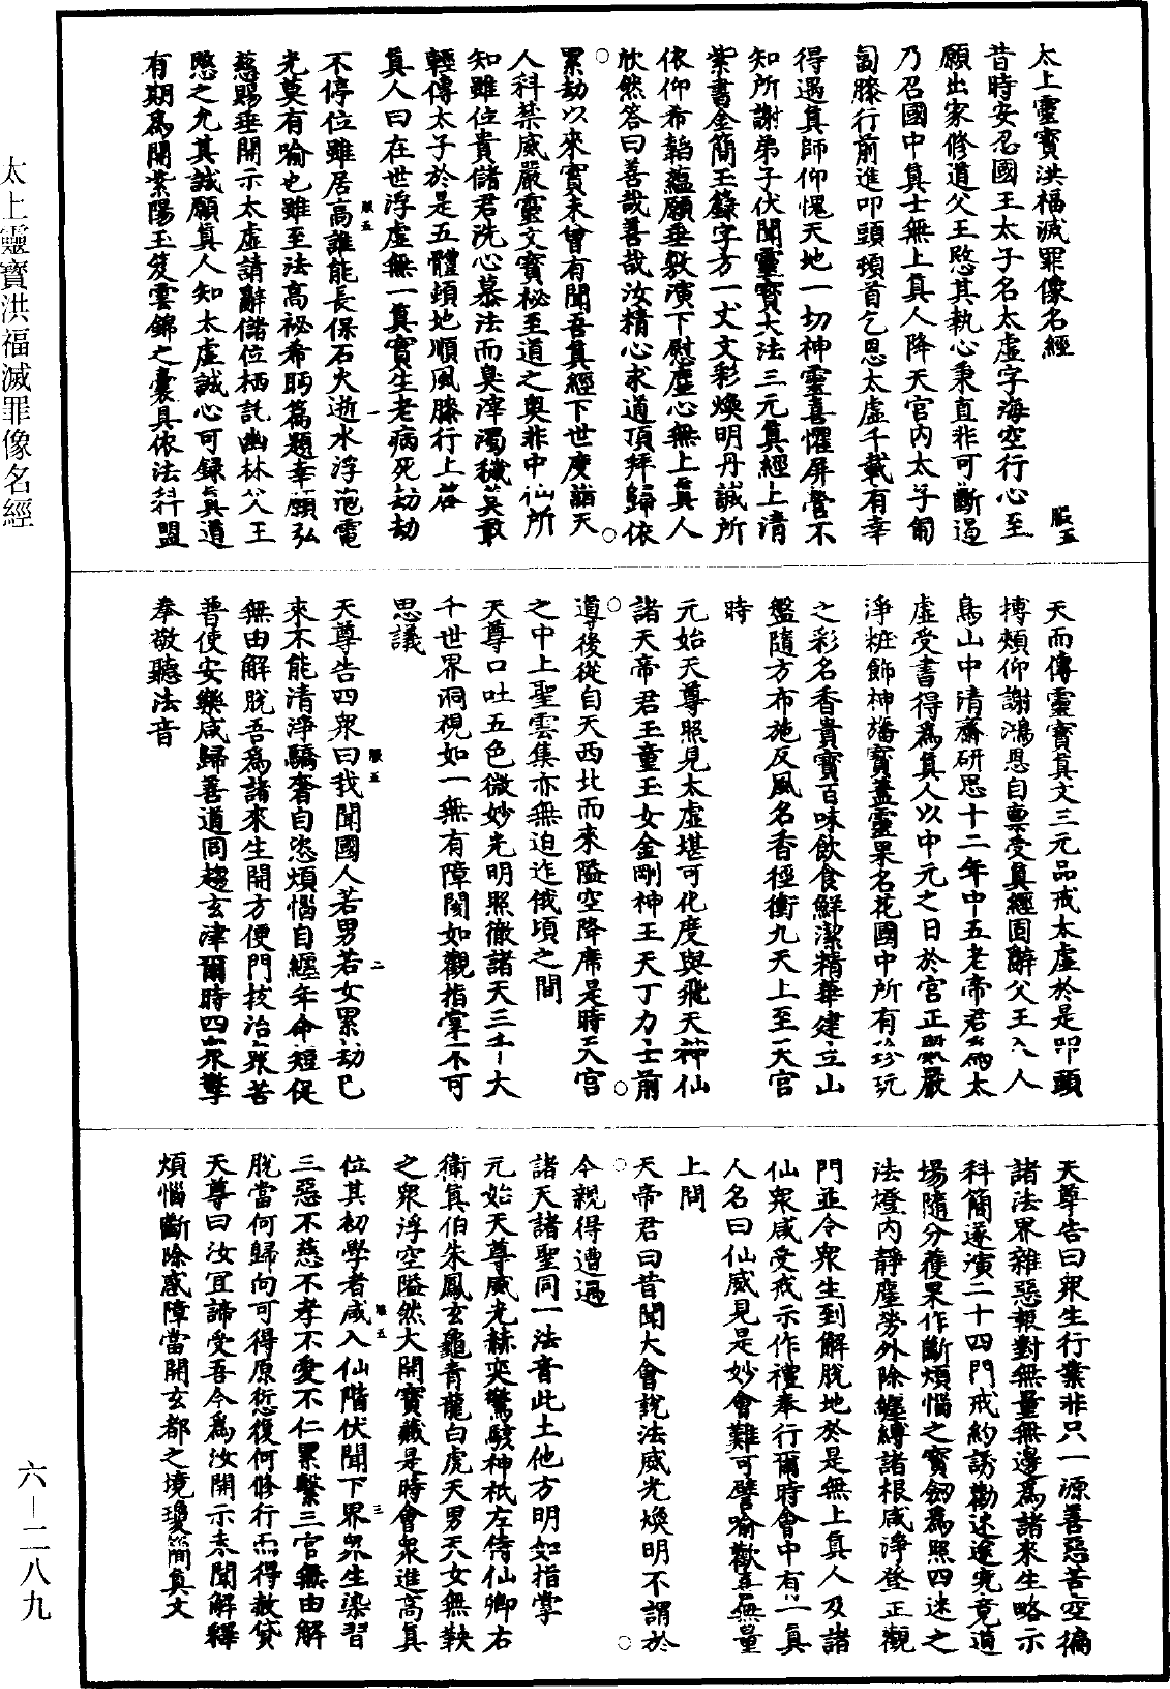 太上靈寶洪福滅罪像名經
服五
昔時安忍國王太子名太虛字海空行心至
願出家修道父王愍其執心秉直非可斷遏
乃召國中真士無上真人降天宮內太子匍
匐膝行前進叩頭頓首乞恩太虛千載有幸
得遇真師仰愧天地一切神靈喜懼屏營不
知所謝弟子伏聞靈寶大法三元真經上清
紫書金簡玉籙字方一丈文彩煥明丹誠所
依仰希韜蘊願垂敷演下慰塵心無上真人
欣然答曰善哉善哉汝精心求道頂拜歸依
累劫以來實未曾有聞吾真經下世度諸天
人科禁威嚴靈文寶秘至道之奧非中仙所
知雖位貴儲君洗心慕法而臭滓濁穢莫敢
輕傳太子於是五體頓地順風膝行上啓
真人曰在世浮虛無一真實生老病死劫劫
服五
一
不停位雖居高誰能長保石火逝水浮泡電
光莫有喻也雖至法高祕希眄篇題幸願弘
慈賜垂開示太虛請辭儲位栖託幽林父王
愍之允其誠願真人知太虛誠心可錄真道
有期為開紫陽玉笈雲錦之囊具依法科盟
天而傳靈寶真文三元品戒太虛於是叩頭
搏頰仰謝鴻恩自稟受真經固辭父王入人
鳥山中清齋研思十二年中五老帝君為太
虛受書得為真人以中元之日於宮正殿嚴
淨粧飾神旛寶蓋靈果名花國中所有珍玩
之彩名香貴寶百味飲食鮮潔精華建立山
盤隨方布施反風名香徑衝九天上至天宮
時
元始天尊照見太虛堪可化度與飛天神仙
諸天帝君玉童玉女金剛神王天丁力士前
導後從自天西北而來隘空降席是時天宮
之中上聖雲集亦無迫迮俄頃之間
天尊口吐五色微妙光明照徹諸天三千大
千世界洞視如一無有障閡如觀指掌不可
思議
服五
二
天尊告四衆曰我聞國人若男若女累劫已
來不能清淨驕奢自恣煩惱自纏年命短促
無由解脫吾為諸來生開方便門技治衆苦
普使安樂咸歸善道同趨玄津爾時四衆擎
奉敬聽法音
天尊告曰衆生行業非只一源善惡苦空徧
諸法界雜惡報對無量無邊為諸來生略示
科簡遂演二十四門戒約誘勸迷途究竟道
場隨分獲果作斷煩惱之寶劒為照四迷之
法燈內靜塵勞外除纏縛諸根咸淨登正觀
門並令衆生到解脫地於是無上真人及諸
仙衆咸受戒示作禮奉行爾時會中有一真
人名曰仙威見是妙會難可譬喻歡喜無量
上問
天帝君曰昔聞大會說法威光煥明不謂於
今親得遭遇
諸天諸聖同一法音此土他方明如指掌
元始天尊威光赫奕驚駭神祇左侍仙卿右
衛真伯朱鳳玄龜青龍白虎天男天女無鞅
之衆浮空隘然大開寶藏是時會衆進高真
服五
三
位其初學者咸入仙階伏聞下界衆生染習
三惡不慈不孝不愛不仁累繫三官無由解
脫當何歸向可得原愆復何修行而得赦貸
天尊曰汝宜諦受吾今為汝開示未聞解釋
煩惱斷除惑障當開玄都之境瓊簡真文
太上靈寶洪福滅罪像名經
六—二八九